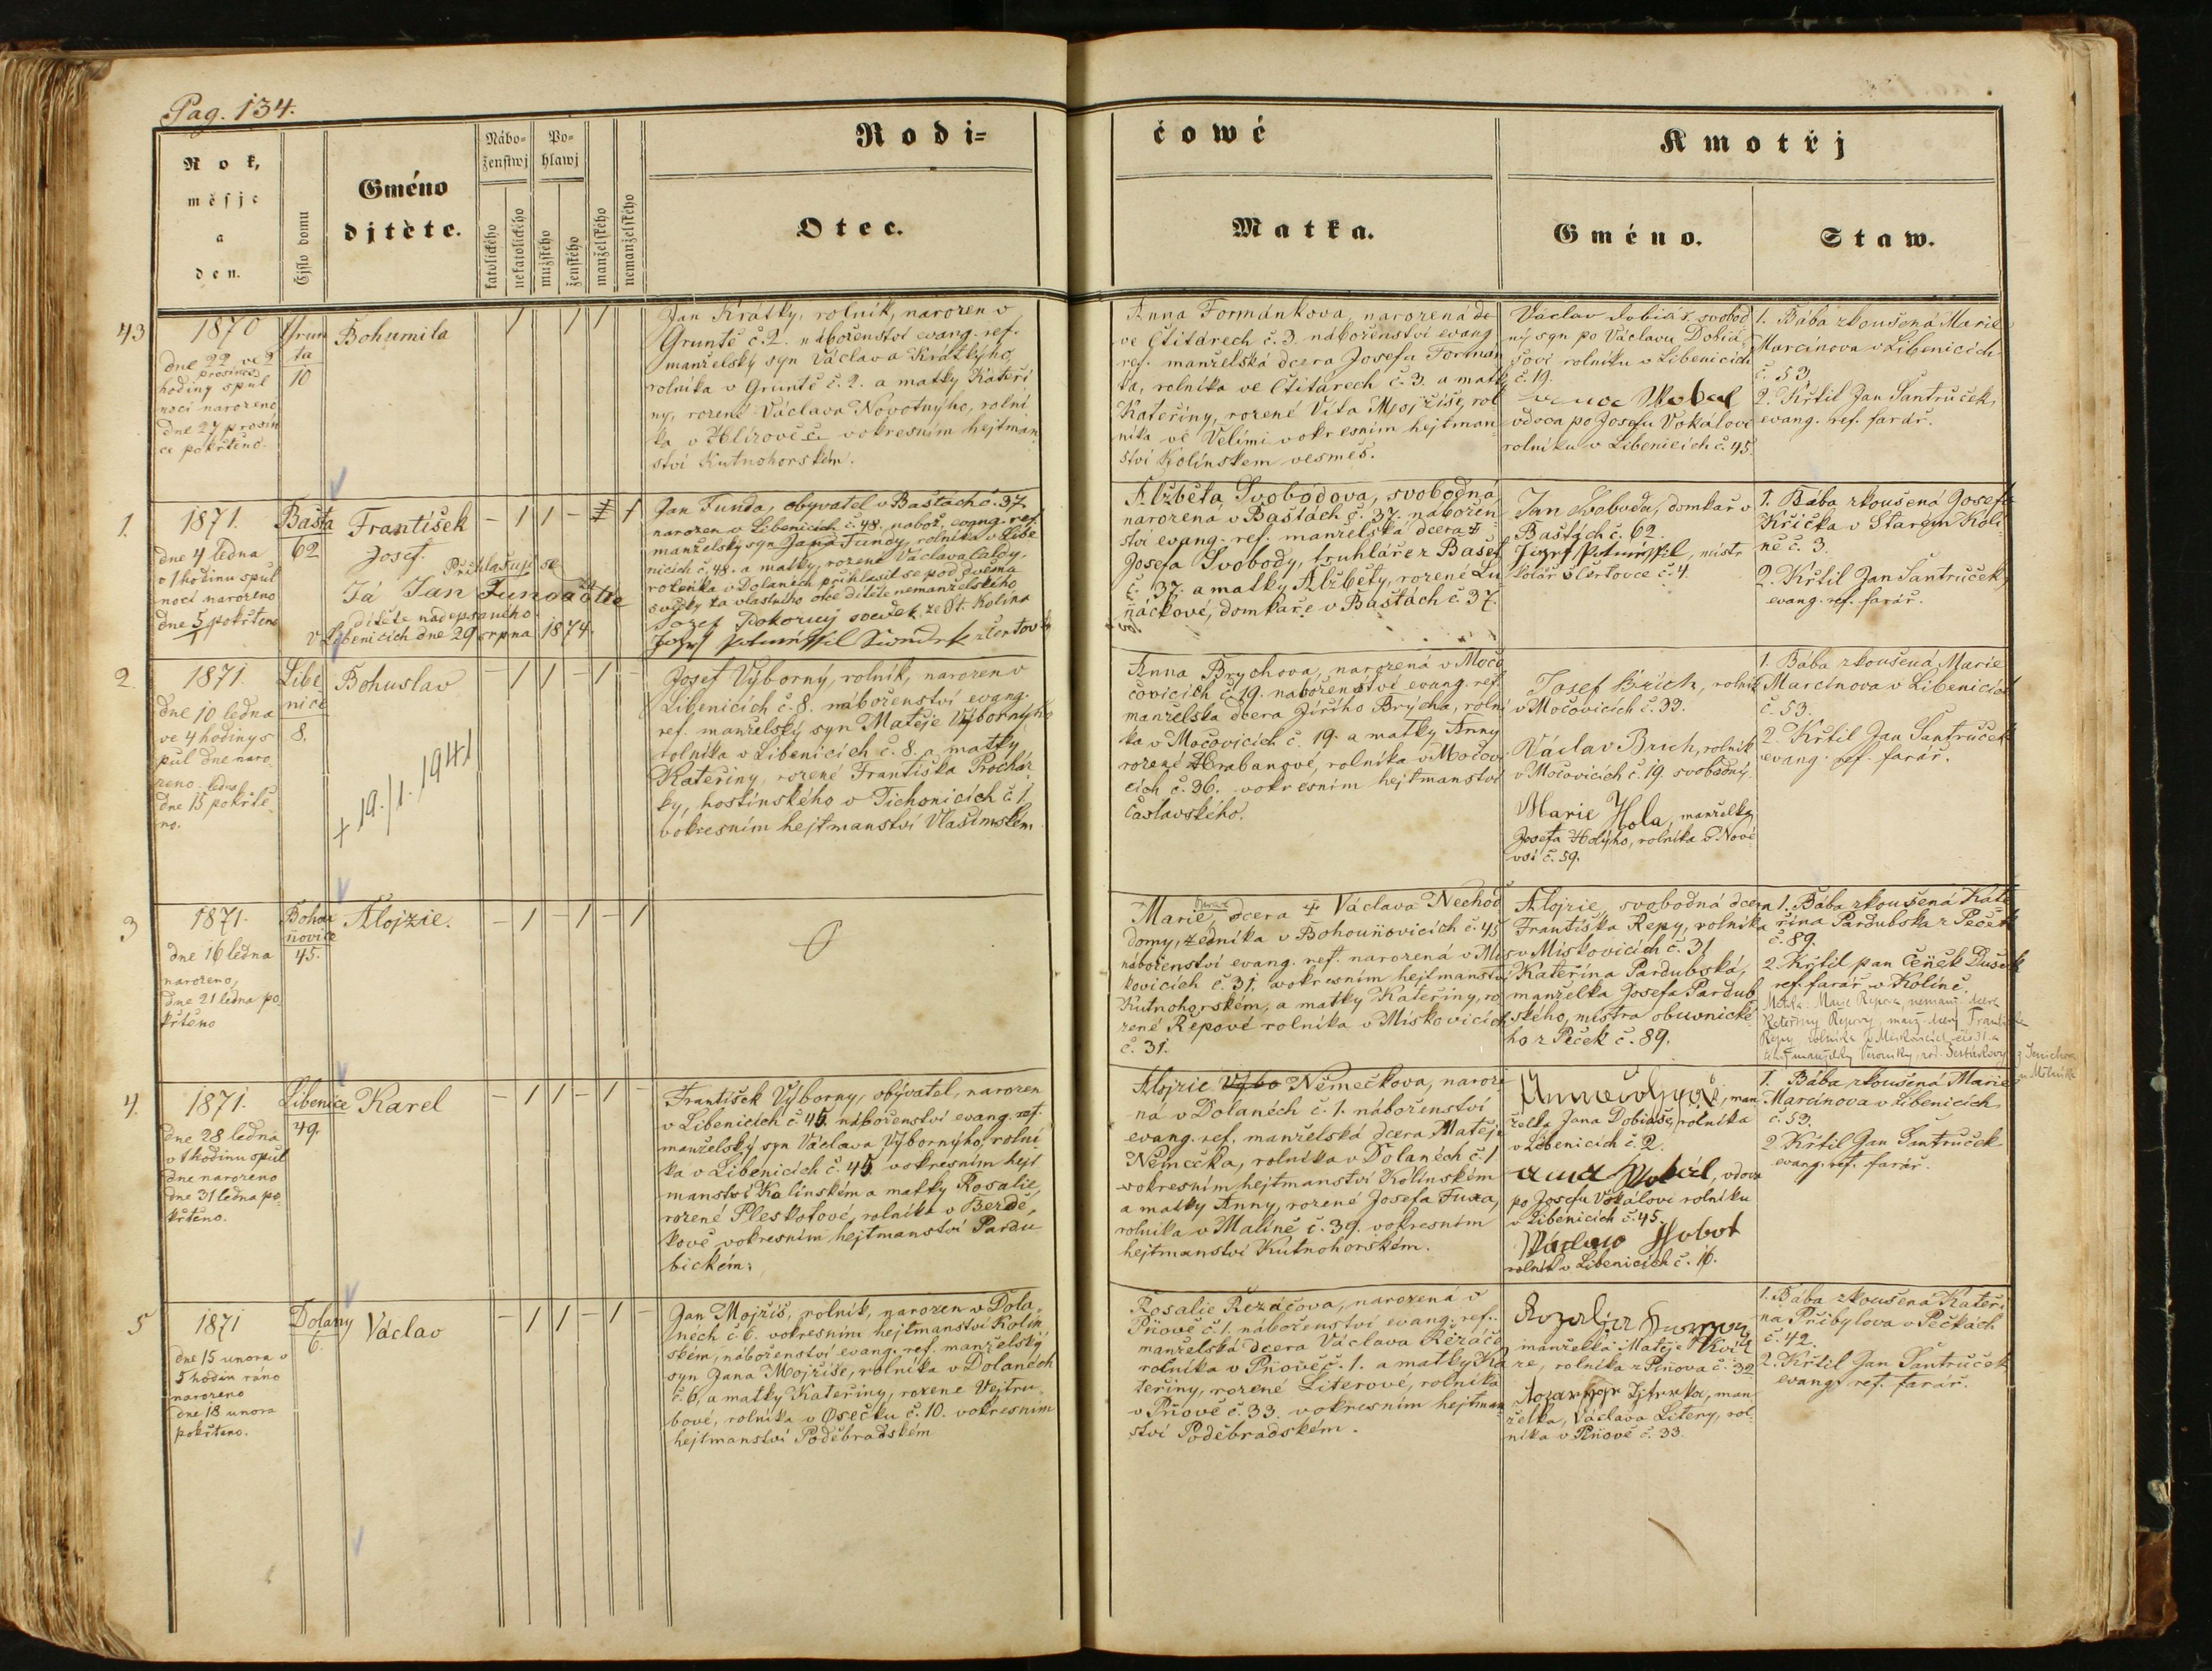 Pag. 134.
Rok,
měsjc
a
den.
Čjslo domu
Gméno
djtěte.
Nábo-
ženstwj
katolického
nekatolického
Po-
hlawj
mužského
ženského
manželského
nemanželského
Rodi=
čowé
Otec.
Matka.
Kmotřj
Gméno.
Staw.
43
1870
dne 22 ve 2
prosince
hodiny s půl
noci narozeno
dne 27 prosin
ce pokřtěno.
Grun
ta
10
Bohumila
/ / /
Jan Krátky, rolník, narozen v
Gruntě č. 2. náboženství evang. ref.
manželský syn Václava Krátkýho,
rolníka v Gruntě č. 2. a matky Kateři
ny, rozené Václava Novotnýho, rolní
ka v Hlízově v okresním hejtman
ství Kutnohorském.
Anna Formánkova, narozená
ve Čtitárech č. 3. náboženství evang
ref. manželská dcera Josefa Formán
ka, rolníka ve Čtitárech č. 3. a matky
Kateřiny, rozené Víta Mojžíše, rol
níka ve Velimi v okresním hejtman
ství Kolínskem vesměs.
Václav Dobiáš, svobod
ný syn po Václavu Dobiá
šovi rolníku v Libenicích
č. 19.
vdova po Josefu Vokálovi
rolníku v Libenicích č. 45.
1. Bába zkoušená Marie
Marcínova v Libenicích
č. 53.
2. Křtil Jan Šantrůček,
evang. ref. farář.
1.
1871.
dne 4 ledna
o 1 hodinu s půl
noci narozeno
dne 5 pokřteno
Bašta
62
František
Josef.
Přihlašuji se
Já Jan Funda otec
dítěte nadepsaného
v Libenicích dne 29 srpna 1874.
- / / - / /
Jan Funda, obyvatel v Baštách č. 37
narozen v Libenicích č. 48. nábož. evang. ref.
manželský syn Jana Fundy, rolníka v Libe
nicích č. 48. a matky, rozené Václava
rolníka v Dolanech přihlásil se pod dvěma
svědky za vlastního otce dítěte nemanželského
Josef Pokorný souček ze St. Kolína
Alžběta Svobodova, svobodná,
narozená v Baštách č. 37. nábožen
ství evang. ref. manželská dcera †
Josefa Svobody, truhláře z Bašt
č. 37. a matky Alžběty, rozené Lu
ňáčkové, domkaře v Baštách č. 37.
Jan Svoboda, domkař v
Baštách č. 62.
mistr
kolář v Čertovce č. 4.
1. Bába zkoušená Josefa
Křička v Starém Kolí
ně č. 3.
2. Křtil Jan Šantrůček,
evang. ref. farář.
2.
1871.
dne 10 ledna
ve 4 hodiny s
půl dne naro
zeno ledna
dne 15 pokřtě
no.
Libe
nice
8.
Bohuslav
+ 19./1. 1941
- / / - / -
Josef Výborný, rolník, narozen v
Libenicích č. 8. náboženství evang.
ref. manželský syn Matěje Výborného
rolníka v Libenicích č. 8. a matky
Kateřiny, rozené Františka Procház
ky, hostinského v Tichonicích č. 1
v okresním hejtmanství Vlašimském
Anna Brychova, narozená v Močo
čovicích č. 19. náboženství evang. ref.
manželska dcera Jiřího Brycha, rolní
ka v Močovicích č. 19. a matky Anny
rozené Hrabanové, rolníka v Močovi
cích č. 36. v okresním hejtmanství
Čáslavského.
Josef Brich, rolník
v Močovicích č. 33.
Václav Brich, rolník
v Močovicích č. 19. svobodný.
Marie Hola, manželka
Josefa Holýho, rolníka v Nové
vsi č. 59.
1. Bába zkoušená Marie
Marcínova v Libenicích
č. 53.
2. Křtil Jan Šantrůček
evang. ref. farář.
3
1871.
dne 16 ledna
narozeno,
dne 21 ledna po
křtěno
Bohou
ňovice
45.
Alojzie.
- / - / - /
Marie, dcera † Václava Nechod
domy, zedníka v Bohouňovicích č. 45
náboženství evang. ref. narozená v Mis
kovicích č. 31. v okresním hejtmanství
Kutnohorském, a matky Kateřiny, ro
zené Řepové rolníka v Miskovicích
č. 31.
Alojzie, svobodná dcera
Františka Řepy, rolníka
v Miskovicích č. 31
Kateřina Pardubská,
manželka Josefa Pardub
ského, mistra obuvnické
ho z Peček č. 89.
1. Bába zkoušená Kate
řina Pardubska z Peček
č. 89.
2. Křtil pan Čeněk Dušek
ref. farář v Kolíně.
Matka: Marie Řepova nemanž. dcera
Kateřiny Řepovy, manž. dcery Františka
Řepy rolníka v Miskovicích čís 31 a
4.
1871.
dne 28 ledna
v 1 hodinu s půl
dne narozeno
dne 31 ledna po
křtěno.
Libenice
49.
Karel
- / / - / -
František Výborny, obývatel, narozen
v Libenicích č. 45. náboženství evang. ref.
manželský syn Václava Výbornýho, rolní
ka v Libenicích č. 45 v okresním hejt
manství Kolínském a matky Rosalie,
rozené Pleskotové, rolníka v Bezdě
kově v okresním hejtmanství Pardu
bickém.
Alojzie Výbo Němečkova, naroze
na v Dolanéch č. 1. náboženství
evang. ref. manželská dcera Matěje
Němečka, rolníka v Dolanéch č. 1
v okresním hejtmanství Kolínském
a matky Anny, rozené Josefa Fuxa,
rolníka v Malíně č. 39. v okresním
hejtmanství Kutnohorském.
man
želka Jana Dobiáše, rolníka
v Libenicích č. 2.
vdova
po Josefu Vokálovi rolníku
v Libenicích č. 45.
Václav Hobot
rolník v Libenicích č. 16.
1. Bába zkoušená Marie
Marcínova v Libenicích
č. 53.
2 Křtil Jan Šantrůček
evang. ref. farář.
5
1871
dne 15 unora v
5 hodin ráno
narozeno
dne 18 unora
pokřteno.
Dolany
6.
Václav
- / / - / -
Jan Mojžíš, rolník, narozen v Dola
néch č. 6. v okresním hejtmanství Kolín
ském, náboženství evang. ref. manželský
syn Jana Mojžíše, rolníka v Dolanéch
č. 6. a matky Kateřiny, rozené Vejtru
bové, rolníka v Osečku č. 10. v okresním
hejtmanství Poděbradském
Rosalie Řezáčova, narozená v
Pňově č. 1. náboženství evang. ref.
manželská dcera Václava Řezáče
rolníka v Pňově č. 1. a matky Ka
teřiny, rozené Literové, rolníka
v Pňově č. 33. v okresním hejtman
ství Poděbradském.
Rozalia
manželka Matěje Kvíč
re, rolníka z Pňova č. 32
man
želka, Václava Litery, rol
níka v Pňově č. 33.
1. Bába zkoušená Kateři
na Přibylova v Pečkách
č. 42.
2. Křtil Jan Šantrůček
evang. ref. farář.